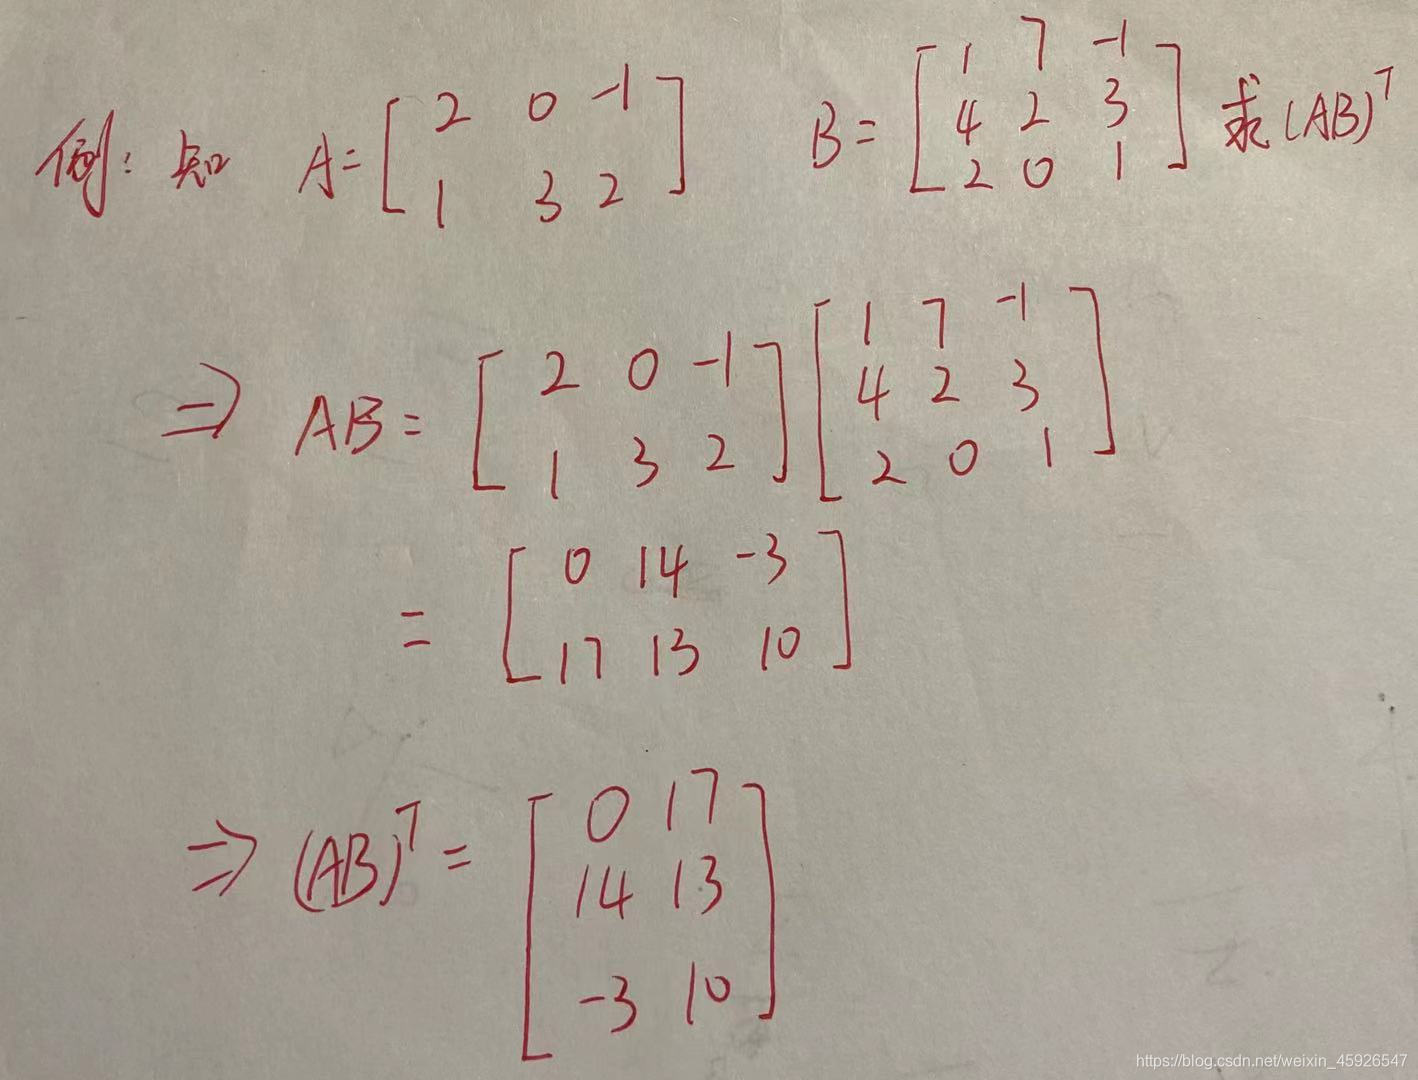 例: 知 A= [ 2 0 -1 B= [ 1 7 -1 求 (AB)^T
1 3 2 ] 4 2 3
2 0 1 ]
⇒ AB= [ 2 0 -1 [ 1 7 -1
1 3 2 ] 4 2 3
2 0 1 ]
= [ 0 14 -3
17 13 10 ]
⇒ (AB)^T = [ 0 17
14 13
-3 10 ]
https://blog.csdn.net/weixin_45926547